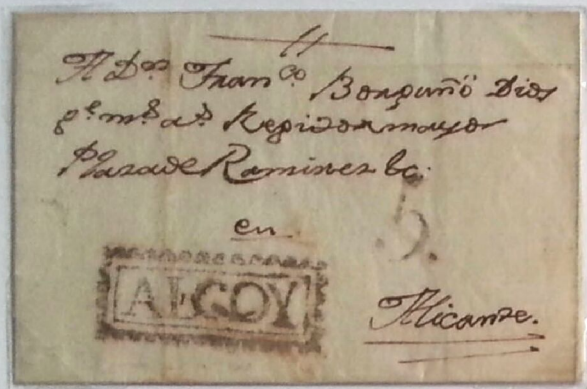 A Dn Franco Borguñó Dios
ge ms as Regidor mayor
Plaza de Ramirez &c.
en
5.
ALCOY
Alicante.